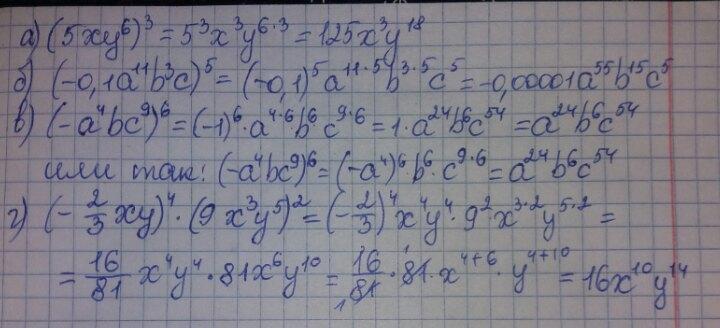 а) (5xy⁶)³ = 5³x³y⁶·³ = 125x³y¹⁸
б) (-0,1a¹¹b³c)⁵ = (-0,1)⁵a¹¹·⁵b³·⁵c⁵ = -0,00001a⁵⁵b¹⁵c⁵
в) (-a⁴bc⁹)⁶ = (-1)⁶·a⁴·⁶b⁶c⁹·⁶ = 1·a²⁴b⁶c⁵⁴ = a²⁴b⁶c⁵⁴
или так: (-a⁴bc⁹)⁶ = (-a⁴)⁶·b⁶·c⁹·⁶ = a²⁴b⁶c⁵⁴
г) (-2/3 xy)⁴·(9x³y⁵)² = (-2/3)⁴x⁴y⁴·9²·x³·²y⁵·² =
= 16/81 x⁴y⁴·81x⁶y¹⁰ = 16/81·81·x⁴⁺⁶·y⁴⁺¹⁰ = 16x¹⁰y¹⁴